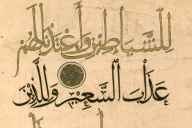 لِلشَّيَاطِينِ وَأَعْتَدْنَا لَهُمْ
عَذَابَ السَّعِيرِ وَلِلَّذِينَ